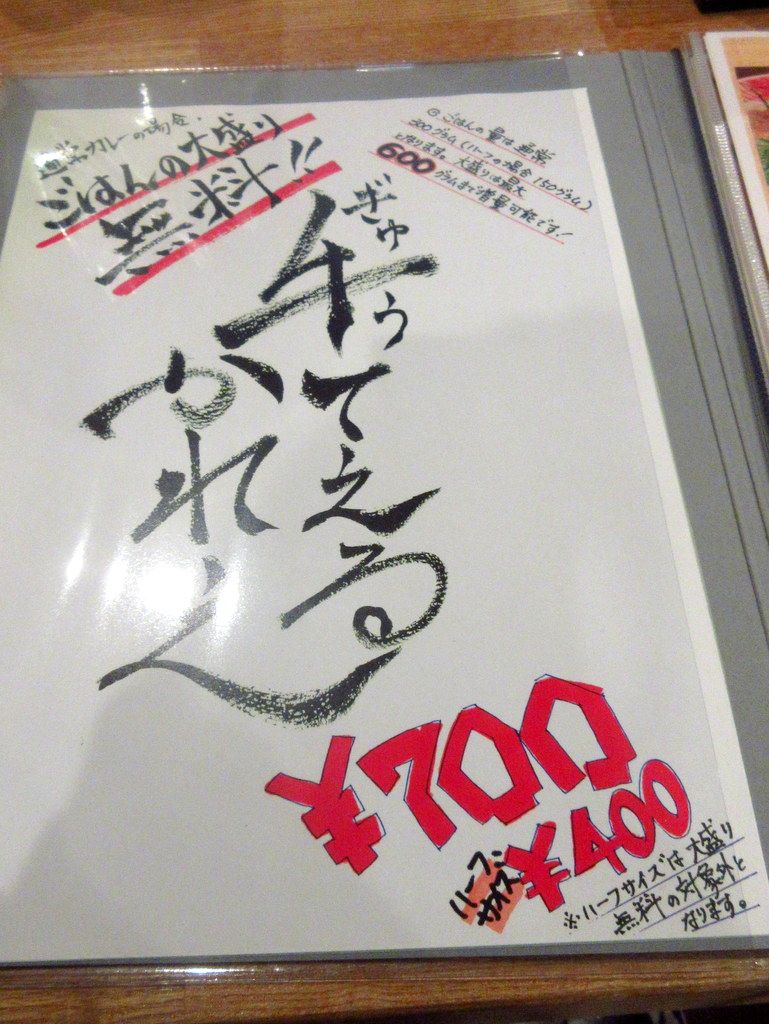 通常カレーの場合、
ごはんの大盛り
無料!!
◎ごはんの量は通常
300グラム(ハーフの場合150グラム)
となります。大盛りは最大
600グラムまで増量可能です!
牛ってえる
ぎゅう
かれえ
¥700
ハーフサイズ ¥400
※ハーフサイズは大盛り
無料の対象外と
なります。